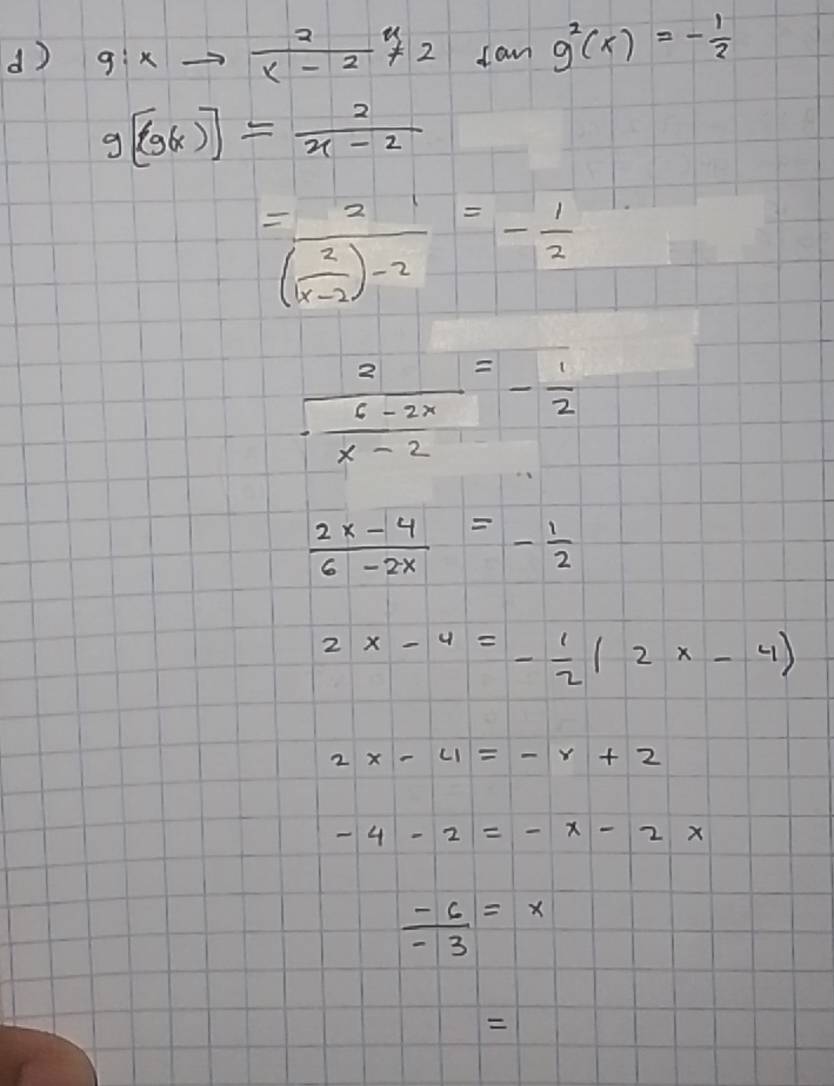 d) g: x → 2/(x - 2) x ≠ 2 dan g²(x) = -1/2
g[(g(x)] = 2/(x - 2)
= 2/((2/(x-2)) - 2) = -1/2
2/((6 - 2x)/(x - 2)) = -1/2
(2x - 4)/(6 - 2x) = -1/2
2x - 4 = -1/2(2x - 4)
2x - 4 = -x + 2
-4 - 2 = -x - 2x
-6/-3 = x
=